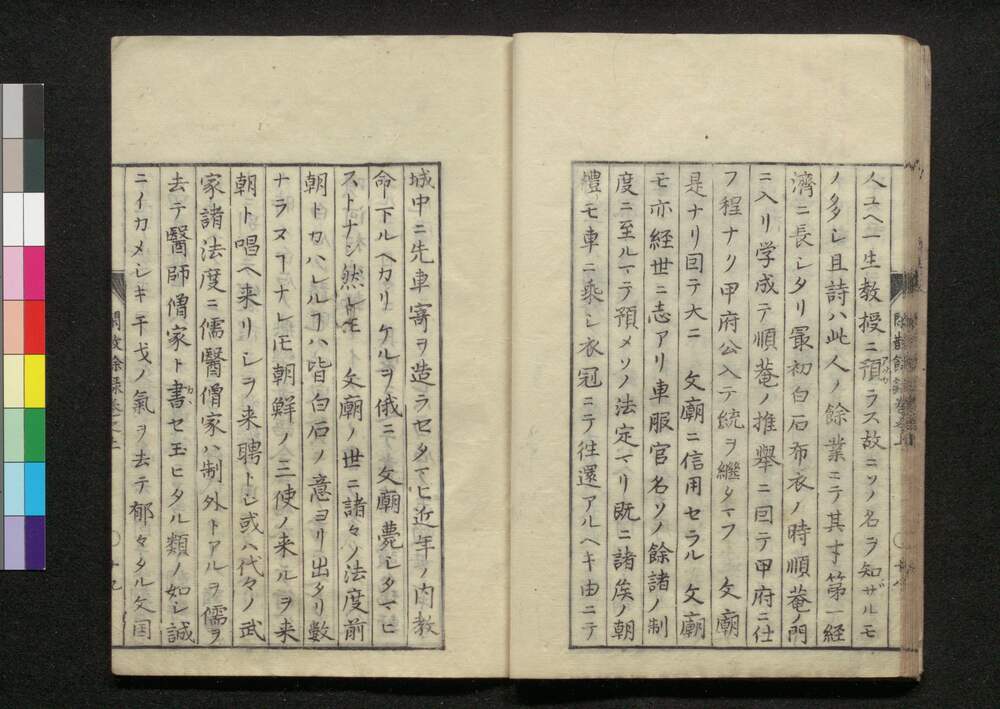 人ユヘ一生教授ニ預ラス故ニソノ名ヲ知ザルモ
ノ多シ且詩ハ此人ノ餘業ニテ其才第一経
濟ニ長シタリ最初白石布衣ノ時順菴ノ門
ニ入リ学成テ順菴ノ推舉ニ回テ甲府ニ仕
フ程ナク甲府公入テ統ヲ継タマフ 文廟
是ナリ回テ大ニ 文廟ニ信用セラル 文廟
モ亦経世ニ志アリ車服官名ソノ餘諸ノ制
度ニ至ルマテ預メソノ法定マリ既ニ諸矦ノ朝
禮モ車ニ乘シ衣冠ニテ往還アルヘキ由ニテ
城中ニ先車寄ヲ造ラセタマヒ近年ノ内教
命下ルヘカリケルヲ俄ニ 文廟薨シタマヒ
ストナン然レ𪜈 文廟ノ世ニ諸々ノ法度前
朝トカハレルヿハ皆白石ノ意ヨリ出タリ数
ナラヌヿナレ𪜈朝鮮ノ三使ノ来ルヲ来
朝ト唱ヘ来リシヲ来聘トシ或ハ代々ノ武
家諸法度ニ儒醫僧家ハ制外トアルヲ儒ヲ
去テ醫師僧家ト書セ玉ヒタル類ノ如シ誠
ニイカメシキ干戈ノ氣ヲ去テ郁々タル文国
閑散餘録巻之上
十九